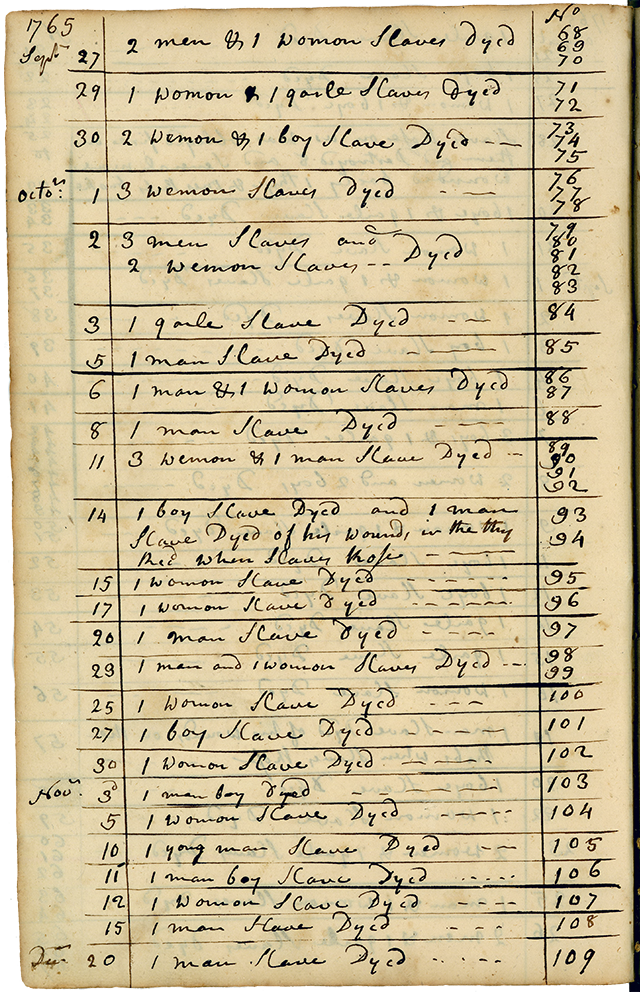 1765
No
Septr 27 2 men & 1 Womon Slaves Dyed 68
69
70
29 1 Womon & 1 garle Slaves Dyed 71
72
30 2 Wemon & 1 boy Slave Dyed 73
74
75
Octor: 1 3 Wemon Slaves Dyed 76
77
78
2 3 men Slaves and 79
80
2 Wemon Slaves -- Dyed 81
82
83
3 1 garle Slave Dyed 84
5 1 man Slave Dyed 85
6 1 man & 1 Womon Slaves Dyed 86
87
8 1 man Slave Dyed 88
11 3 Wemon & 1 man Slave Dyed 89
90
91
92
14 1 boy Slave Dyed and 1 man 93
Slave Dyed of his Wounds in the 94
when Slaves Rose
15 1 Womon Slave Dyed 95
17 1 Womon Slave Dyed 96
20 1 man Slave Dyed 97
23 1 man and 1 Womon Slaves Dyed 98
99
25 1 Womon Slave Dyed 100
27 1 boy Slave Dyed 101
30 1 Womon Slave Dyed 102
Novr. 3d 1 man boy Dyed 103
5 1 Womon Slave Dyed 104
10 1 yong man Slave Dyed 105
11 1 man boy Slave Dyed 106
12 1 Womon Slave Dyed 107
15 1 man Slave Dyed 108
20 1 man Slave Dyed 109